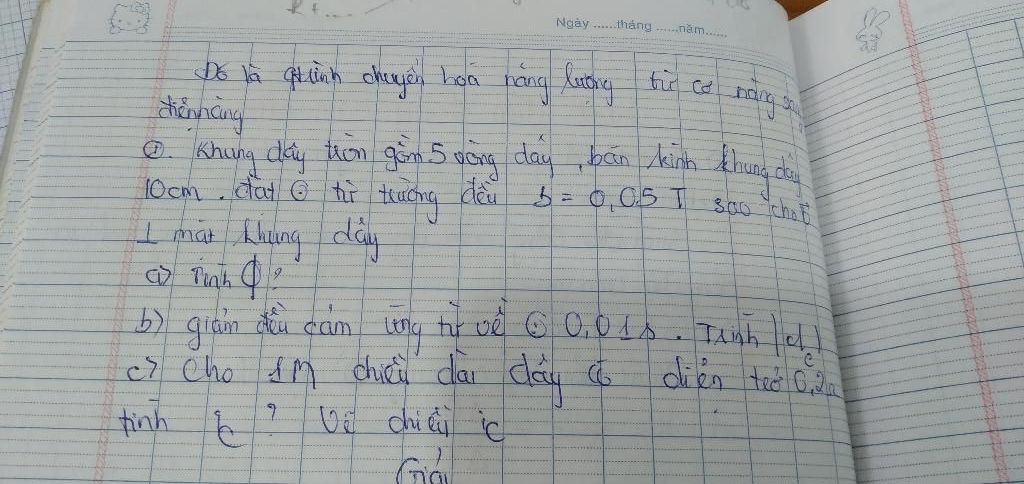 Ngày ......tháng ......năm......
Đó là qtrình chuyển hoá năng lượng từ cơ năng sang
điện năng
①. Khung dây tròn gồm 5 vòng dây, bán kính khung dây
10cm. đặt ⊙ từ trường đều b = 0,05 T sao cho B
⊥ mặt khung dây
a) Tính Φ?
b) giảm đều cảm ứng từ về ⊙ 0,01s. Tính |ec|
c) Cho 1m chiều dài dây có điện trở 0,2
tính ic? Vẽ chiều ic
Giải